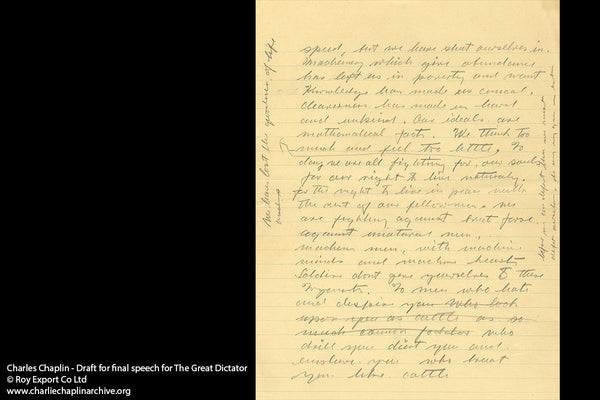 speed, but we have shut ourselves in.
Machinery which give abundance
has left us in poverty and want
Knowledge has made us cynical,
cleverness has made us hard
and unkind. Our ideals are
mathematical facts. We think too
much and feel too little. To
day we are all fighting for our souls
for our right to live naturally.
for the right to live in peace
the of our fellowmen. We
are fighting against brut force
against unnatural men,
machine men, with machine
minds and machine hearts
Soldiers dont give yourselves to these
To men who hate
and despise you who look
upon you as cattle as so
much cannon fodder who
drill you diet you and
enslave you who treat
you like cattle
We have lost the of life
Charles Chaplin - Draft for final speech for The Great Dictator
© Roy Export Co Ltd
www.charliechaplinarchive.org